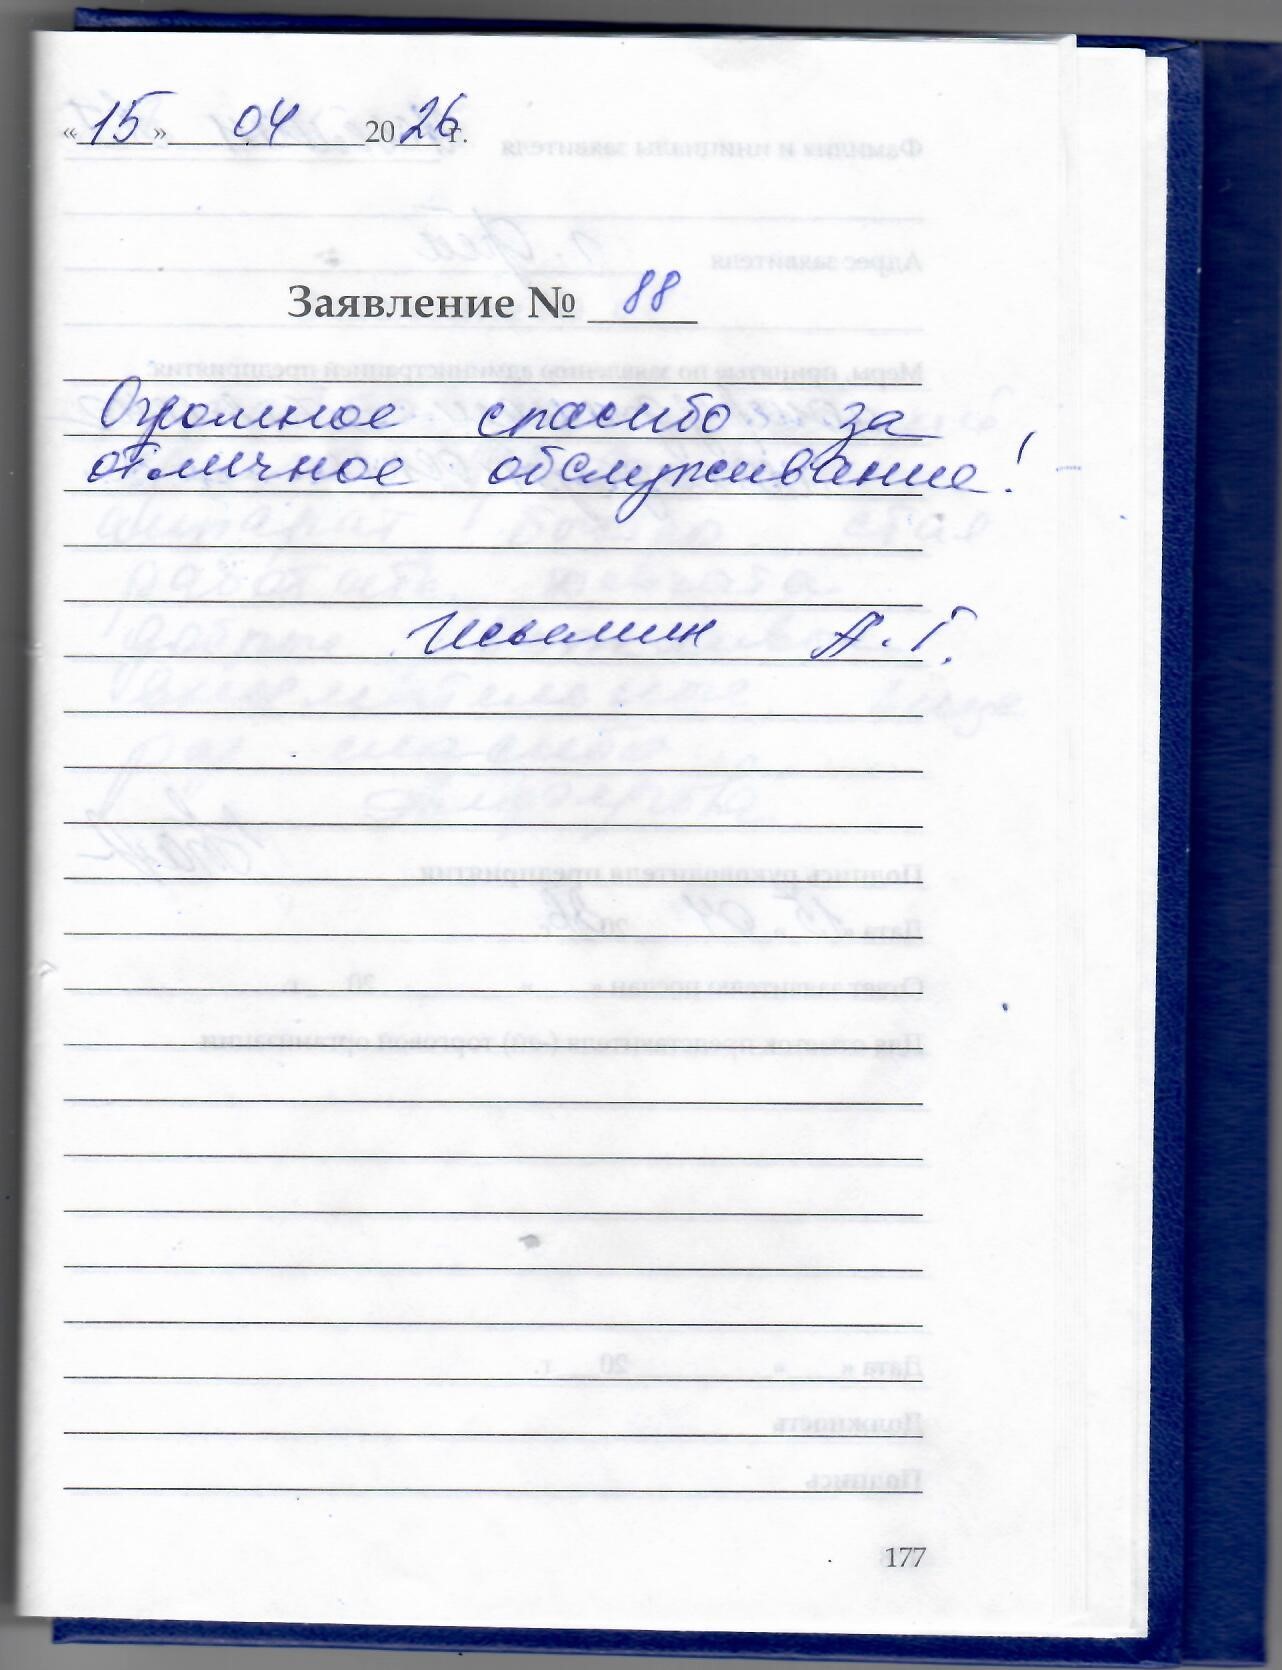 «15» 04 2026 г.
Заявление № 88
Огромное спасибо за
отличное обслуживание!
А. Г.
177